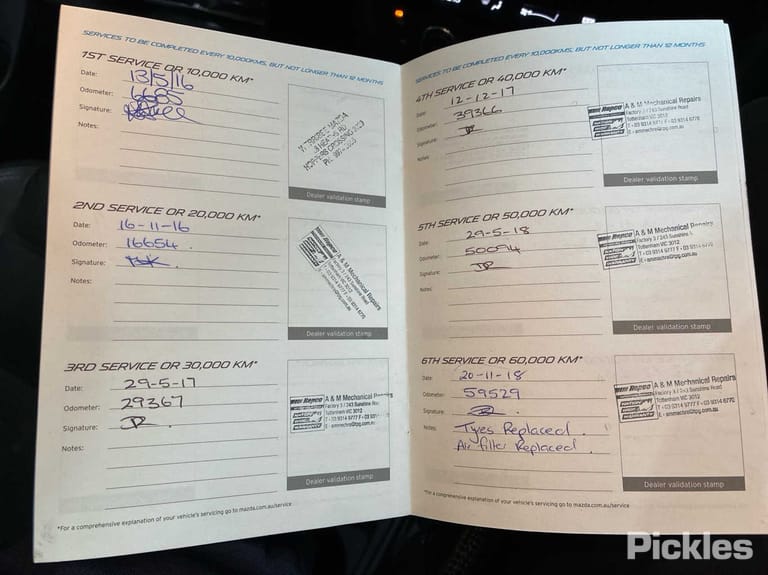 SERVICES TO BE COMPLETED EVERY 10,000KMS, BUT NOT LONGER THAN 12 MONTHS
1ST SERVICE OR 10,000 KM*
Date: 13/5/16
Odometer: 6685
Signature:
Notes:
HOPPERS CROSSING
Dealer validation stamp
2ND SERVICE OR 20,000 KM*
Date: 16-11-16
Odometer: 16654.
Signature:
Notes:
Repco A & M Mechanical Repairs
Factory 3 / 243 Sunshine Road
Tottenham VIC 3012
T - 03 9314 9777 F - 03 9314 6770
E - ammechre@tpg.com.au
Dealer validation stamp
3RD SERVICE OR 30,000 KM*
Date: 29-5-17
Odometer: 29367
Signature:
Notes:
Repco A & M Mechanical Repairs
Factory 3 / 243 Sunshine
Tottenham VIC 3012
T - 03 9314 9777 F - 03 931
E - ammechre@tpg.com.au
Dealer validation stamp
*For a comprehensive explanation of your vehicle's servicing go to mazda.com.au/service
SERVICES TO BE COMPLETED EVERY 10,000KMS, BUT NOT LONGER THAN 12 MONTHS
4TH SERVICE OR 40,000 KM*
Date: 12-12-17
Odometer: 39366
Signature:
Notes:
Repco A & M Mechanical Repairs
Factory 3 / 243 Sunshine Road
Tottenham VIC 3012
T - 03 9314 9777 F - 03 9314 6770
E - ammechre@tpg.com.au
Dealer validation stamp
5TH SERVICE OR 50,000 KM*
Date: 29-5-18
Odometer: 50094
Signature:
Notes:
Repco A & M Mechanical Repairs
Factory 3 / 243 Sunshine
Tottenham VIC 3012
T - 03 9314 9777 F - 03 9314 6770
E - ammechre@tpg.com.au
Dealer validation stamp
6TH SERVICE OR 60,000 KM*
Date: 20-11-18
Odometer: 59529
Signature:
Notes: Tyes Replaced.
Air filter Replaced.
Repco A & M Mechanical Repairs
Factory 3 / 243 Sunshine Road
Tottenham VIC 3012
T - 03 9314 9777 F - 03 9314 6770
E - ammechre@tpg.com.au
Dealer validation stamp
*For a comprehensive explanation of your vehicle's servicing go to mazda.com.au/service
Pickles